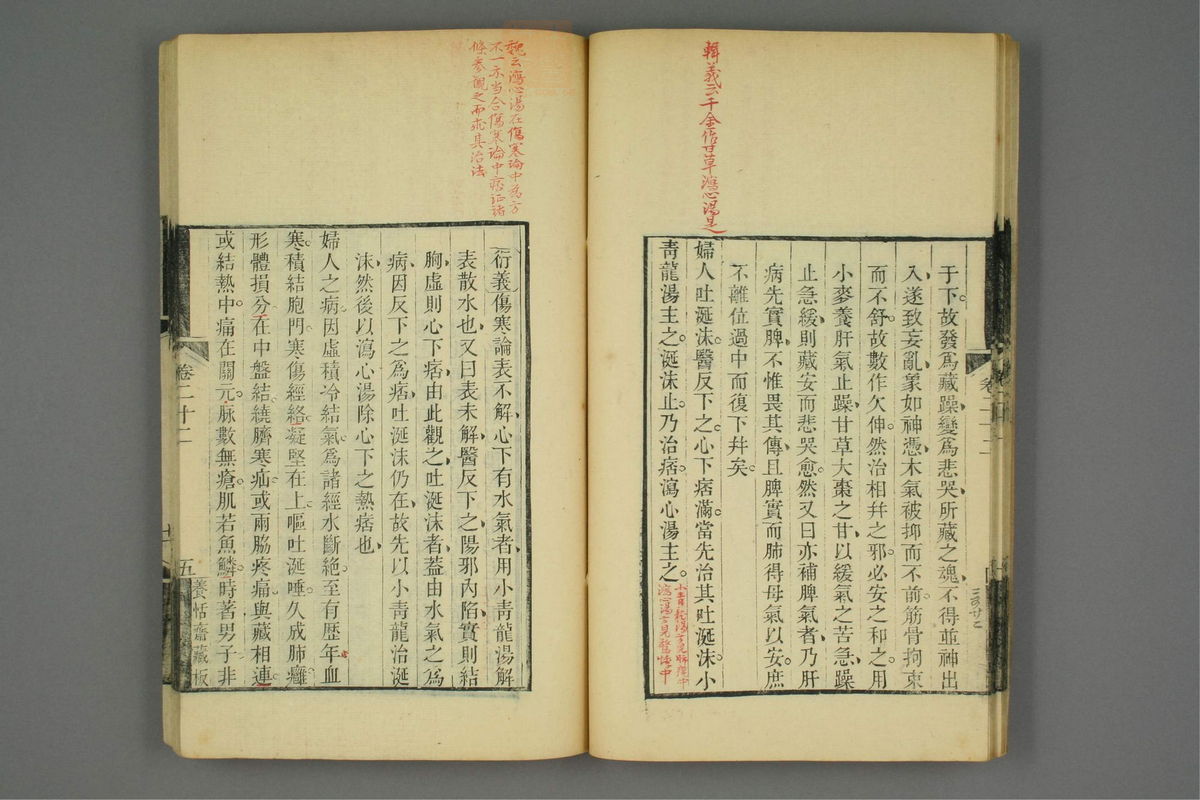 輯義云千金作甘草瀉心湯是
于下故發爲藏躁變爲悲哭所藏之魂不得並神出
入遂致妄亂象如神憑木氣被抑而不前筋骨拘束
而不舒故數作欠伸然治相幷之邪必安之和之用
小麥養肝氣止躁甘草大棗之甘以緩氣之苦急躁
止急緩則藏安而悲哭愈然又曰亦補脾氣者乃肝
病先實脾不惟畏其傳且脾實而肺得母氣以安庶
不離位過中而復下幷矣
婦人吐涎沫醫反下之心下痞滿當先治其吐涎沫小
青龍湯主之涎沫止乃治痞瀉心湯主之
小青龍湯方見肺癰中
瀉心湯方見驚悸中
魏云瀉心湯在傷寒論中爲方
不一亦当合傷寒論中痞証諸
條參觀之而求其治法
衍義傷寒論表不解心下有水氣者用小青龍湯解
表散水也又曰表未解醫反下之陽邪內陷實則結
胸虛則心下痞由此觀之吐涎沫者蓋由水氣之爲
病因反下之爲痞吐涎沫仍在故先以小青龍治涎
沫然後以瀉心湯除心下之熱痞也
婦人之病因虛積冷結氣爲諸經水斷絶至有歷年血
寒積結胞門寒傷經絡凝堅在上嘔吐涎唾久成肺癰
形體損分在中盤結繞臍寒疝或兩脇疼痛與藏相連
或結熱中痛在關元脉數無瘡肌若魚鱗時著男子非
卷二十二
五
養恬齋藏板